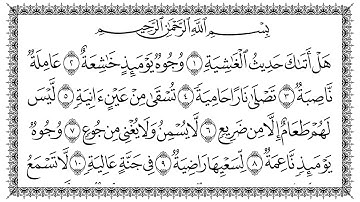 بِسْمِ ٱللَّهِ ٱلرَّحْمَٰنِ ٱلرَّحِيمِ
هَلْ أَتَىٰكَ حَدِيثُ ٱلْغَٰشِيَةِ ١ وُجُوهٌ يَوْمَئِذٍ خَٰشِعَةٌ ٢ عَامِلَةٌ
نَّاصِبَةٌ ٣ تَصْلَىٰ نَارًا حَامِيَةً ٤ تُسْقَىٰ مِنْ عَيْنٍ ءَانِيَةٍ ٥ لَّيْسَ
لَهُمْ طَعَامٌ إِلَّا مِن ضَرِيعٍ ٦ لَّا يُسْمِنُ وَلَا يُغْنِى مِن جُوعٍ ٧ وُجُوهٌ
يَوْمَئِذٍ نَّاعِمَةٌ ٨ لِّسَعْيِهَا رَاضِيَةٌ ٩ فِى جَنَّةٍ عَالِيَةٍ ١٠ لَّا تَسْمَعُ